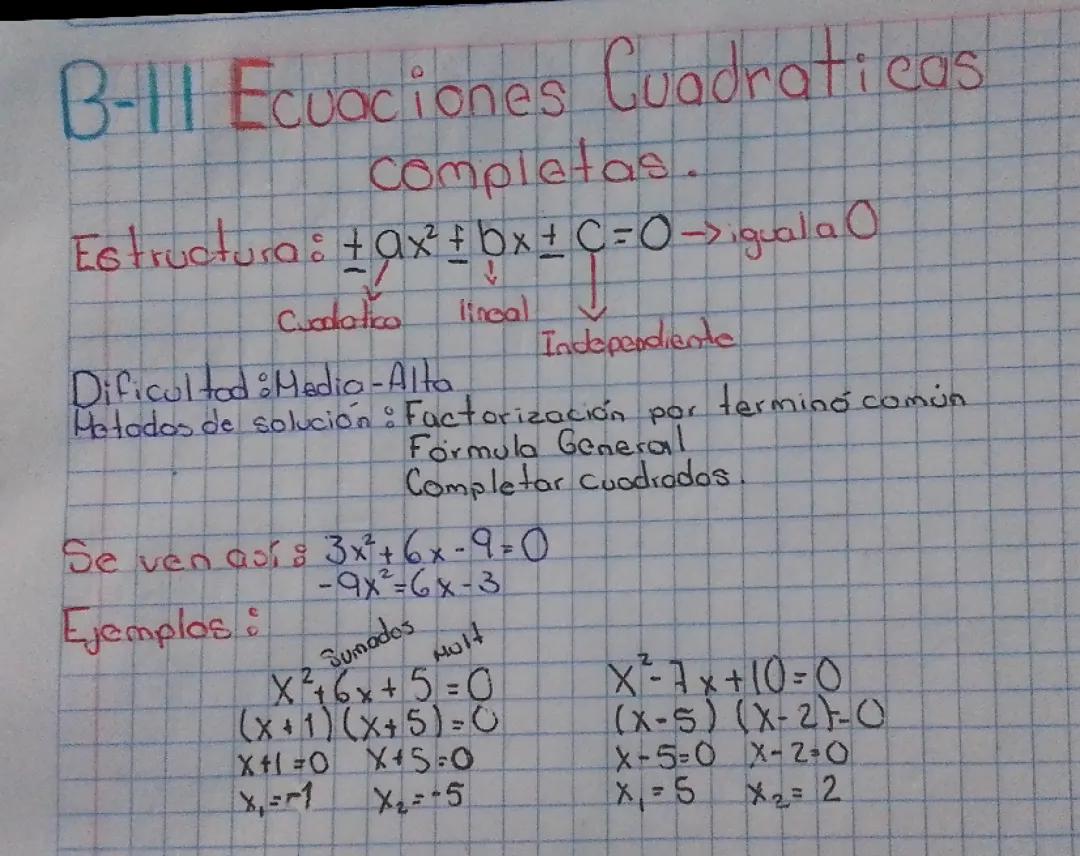 B-11 Ecuaciones Cuadraticas
completas.
Estructura: ± ax² ± bx ± c = 0 → igual a 0
Cuadatico lineal
Independiente
Dificultad: Media-Alta
Metodos de solución: Factorización por termino común
Fórmula General
Completar cuadrados.
Se ven así: 3x²+6x-9=0
-9x²=6x-3
Ejemplos:
Sumados Mult
x²+6x+5=0 x²-7x+10=0
(x+1)(x+5)=0 (x-5)(x-2)=0
x+1=0 x+5=0 x-5=0 x-2=0
x₁=-1 x₂=-5 x₁=5 x₂=2